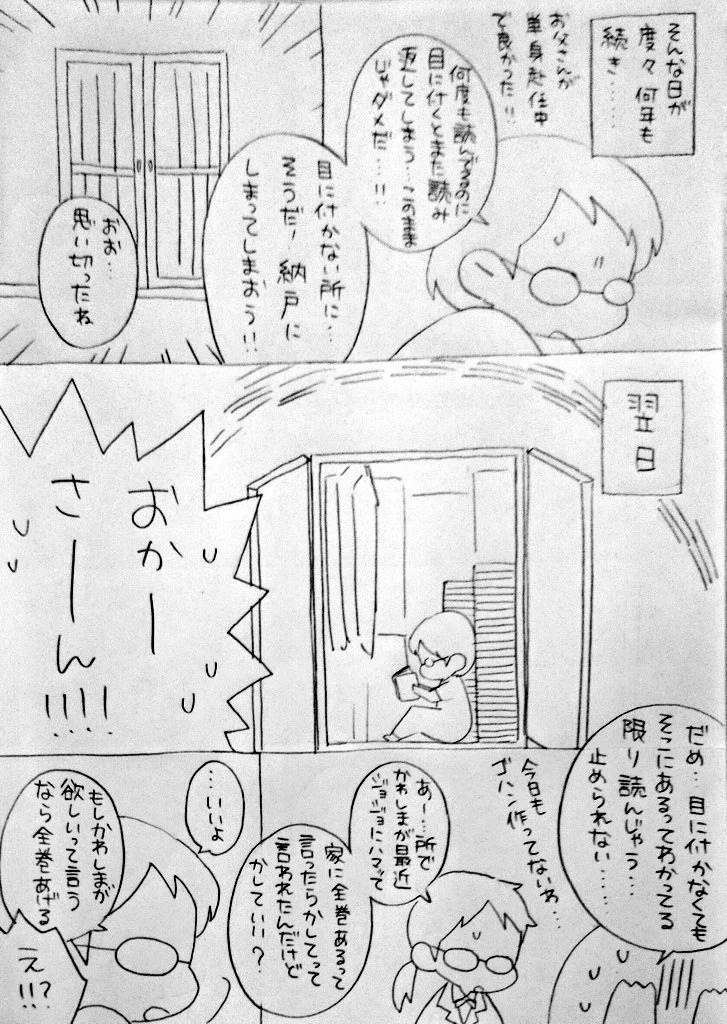 そんな日が
度々何年も
続き……
お父さんが
単身赴任中
で良かった!!
何度も読んでるのに
目に付くとまた読み
返してしまう…このまま
じゃダメだ…!!
目に付かない所に…
そうだ!納戸に
しまってしまおう!!
おお…
思い切ったね
翌日
おかー
さーん!!!!
だめ…目に付かなくても
そこにあるってわかってる
限り読んじゃう…
止められない…
今日も
ゴハン作ってないわ…
あー…所で
かわしまが最近
ジョジョにハマッて
家に全巻あるって
言ったらかしてって
言われたんだけど
かしていい?
…いいよ
もしかわしまが
欲しいって言う
なら全巻あげる
え!!?